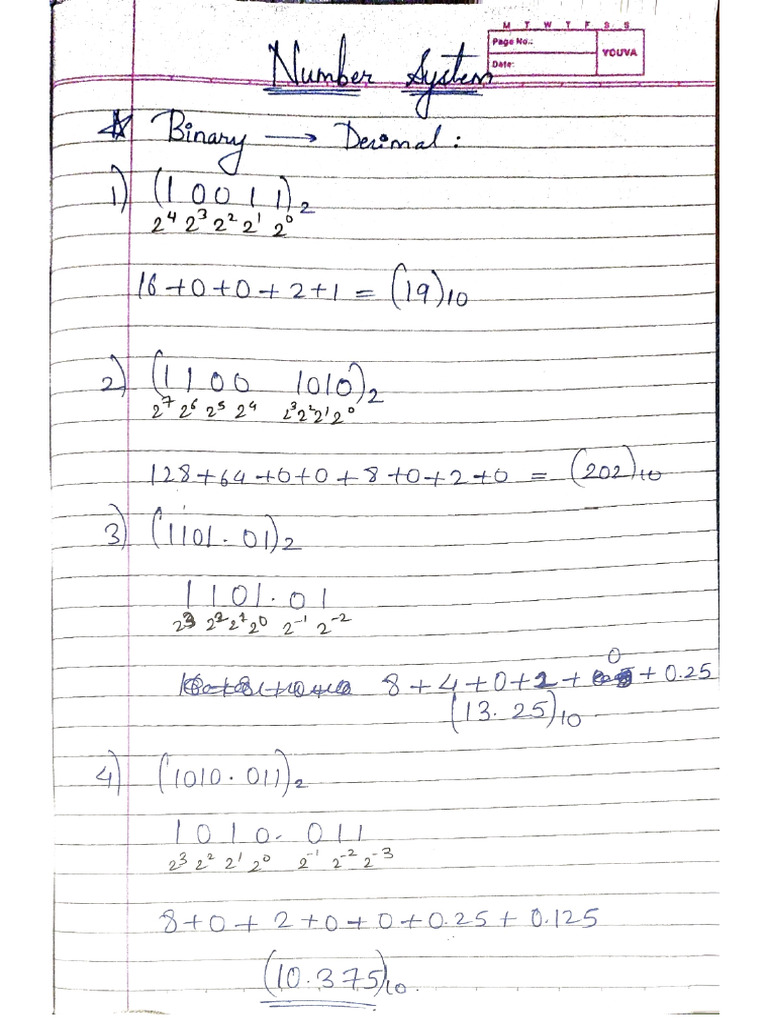 M T W T F S S
Page No.:
YOUVA
Date:
Number System
Binary → Decimal :
1) (1 0 0 1 1)₂
2⁴ 2³ 2² 2¹ 2⁰
16 + 0 + 0 + 2 + 1 = (19)₁₀
2) (1 1 0 0 1010)₂
2⁷ 2⁶ 2⁵ 2⁴ 2³ 2² 2¹ 2⁰
128 + 64 + 0 + 0 + 8 + 0 + 2 + 0 = (202)₁₀
3) (1101.01)₂
1 1 0 1 . 0 1
2³ 2² 2¹ 2⁰ 2⁻¹ 2⁻²
8 + 4 + 0 + 1 + 0 + 0.25
(13.25)₁₀
4) (1010.011)₂
1 0 1 0 . 0 1 1
2³ 2² 2¹ 2⁰ 2⁻¹ 2⁻² 2⁻³
8 + 0 + 2 + 0 + 0 + 0.25 + 0.125
(10.375)₁₀.